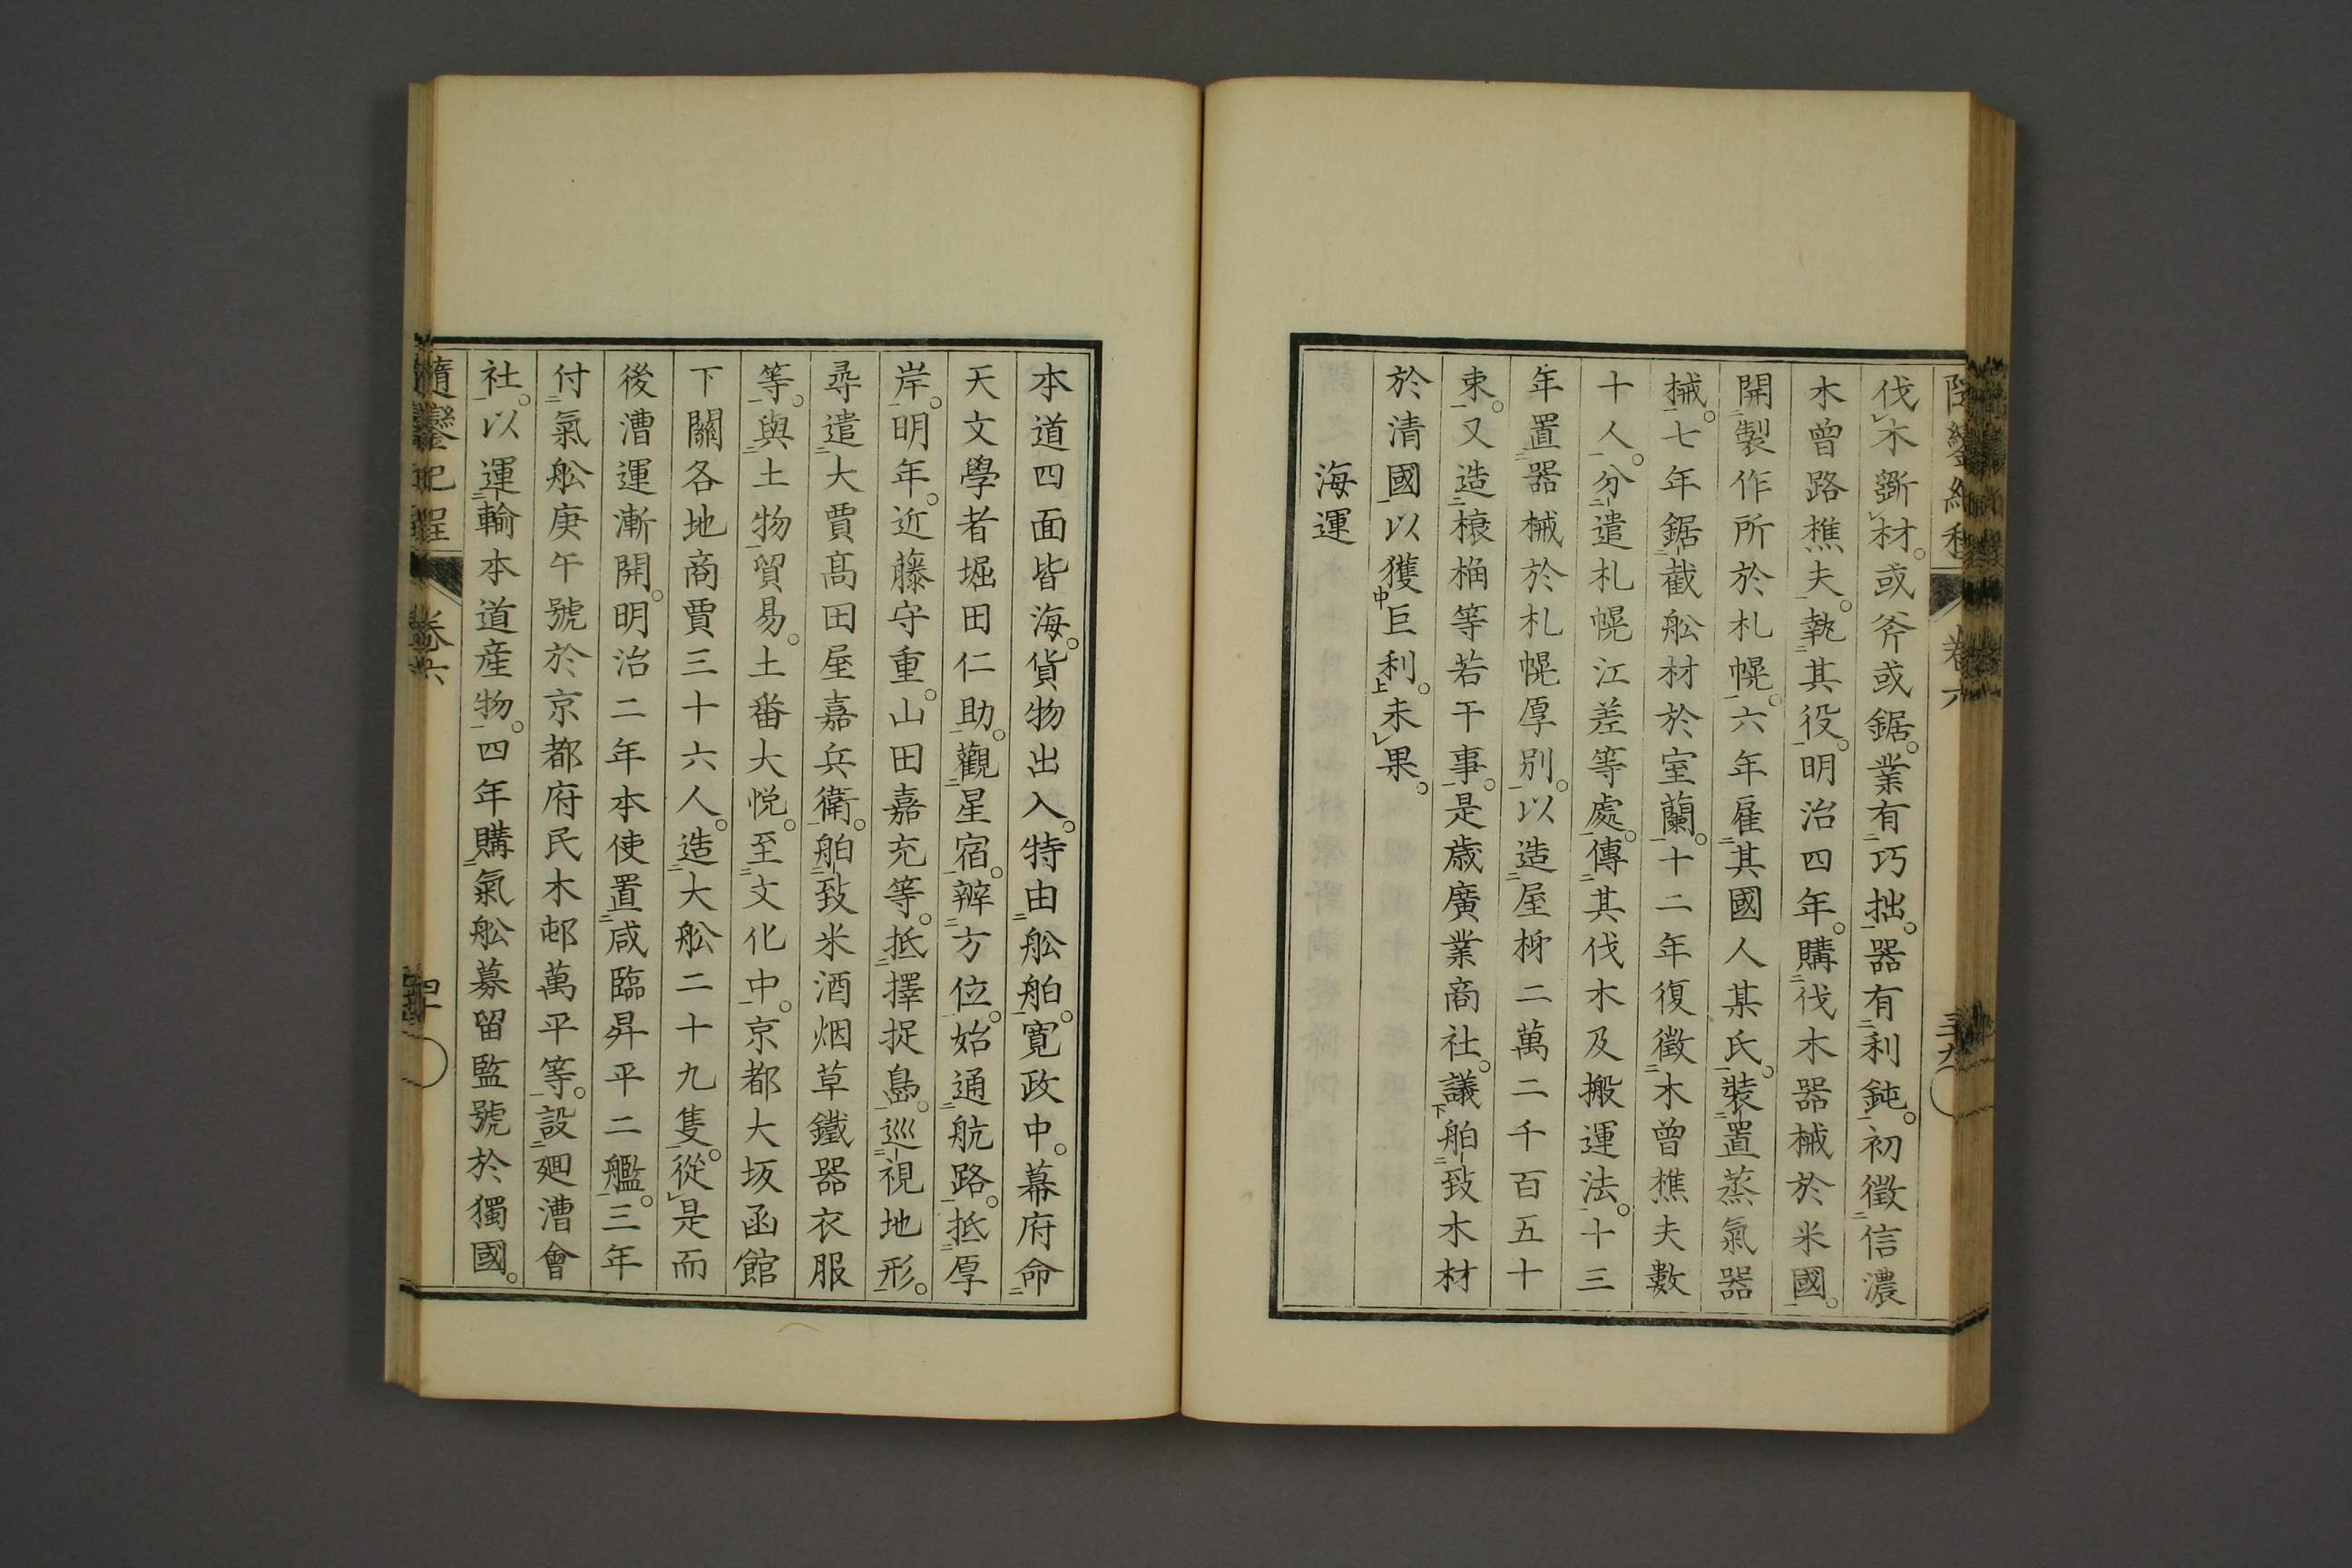 伐木斷材。或斧或鋸。業有巧拙。器有利鈍。初徵信濃
木曾路樵夫。執其役。明治四年。購伐木器械於米國。
開製作所於札幌。六年雇其國人某氏。裝置蒸氣器
械。七年鋸截舩材於室蘭。十二年復徵木曾樵夫數
十人。分遣札幌江差等處。傳其伐木及搬運法。十三
年置器械於札幌厚別。以造屋枌二萬二千百五十
束。又造榱桷等若干事。是歲廣業商社。議舶致木材
於清國以獲巨利。未果。
海運
本道四面皆海。貨物出入。特由舩舶。寬政中。幕府命
天文學者堀田仁助。觀星宿。辨方位。始通航路。抵厚
岸。明年。近藤守重。山田嘉充等。抵擇捉島。巡視地形。
尋遣大賈髙田屋嘉兵衛。舶致米酒烟草鐵器衣服
等。與土物貿易。土番大悅。至文化中。京都大坂函館
下關各地商賈三十六人。造大舩二十九隻。從是而
後漕運漸開。明治二年本使置咸臨昇平二艦。三年
付氣舩庚午號於京都府民木邨萬平等。設廻漕會
社。以運輸本道産物。四年購氣舩募留監號於獨國。
隨鑾紀程
卷六
四十
卷六
三十九